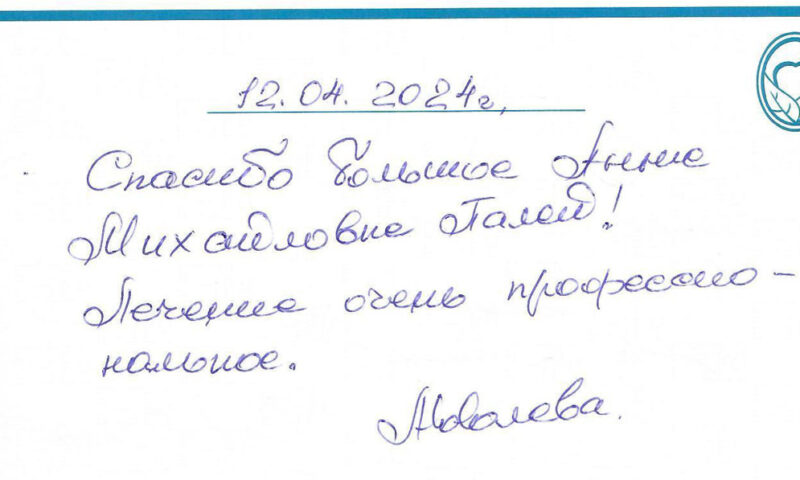 12.04.2024г,
Спасибо большое Анне
Михайловне Палей!
Лечение очень профессио-
нальное.